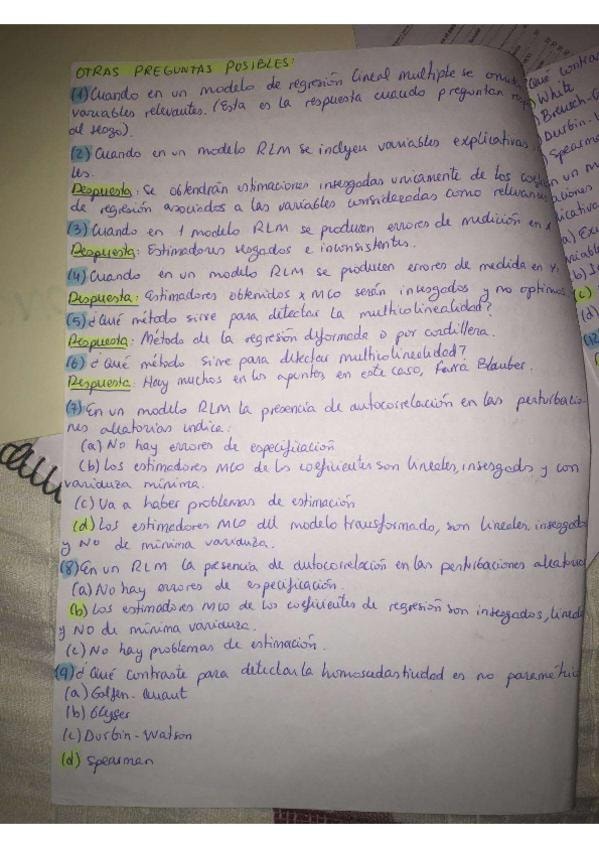 OTRAS PREGUNTAS POSIBLES:
(1) Cuando en un modelo de regresión lineal multiple se
variables relevantes. (Esta es la respuesta cuando preguntan
al sesgo).
(2) Cuando en un modelo RLM se incluyen variables explicativas
les.
Respuesta: Se obtendrán estimaciones insesgadas unicamente de los
de regresión asociados a las variables consideradas como relevantes
(3) Cuando en 1 modelo RLM se producen errores de medición en
Respuesta: Estimadores sesgados e inconsistentes.
(4) Cuando en un modelo RLM se producen errores de medida en Y.
Respuesta: Estimadores obtenidos x MCO serán insesgados y no optimos
(5) ¿Qué método sirve para detectar la multicolinealidad?
Respuesta: Método de la regresión o por cordillera.
(6) ¿Qué método sirve para detectar multicolinealidad?
Respuesta: Hay muchos en los apuntes en este caso, Farra Glauber.
(7) En un modelo RLM la presencia de autocorrelación en las perturbacio-
nes aleatorias indica:
(a) No hay errores de especificación
(b) Los estimadores MCO de los coeficientes son lineales, insesgados y con
varianza mínima.
(c) Va a haber problemas de estimación
(d) Los estimadores MCO del modelo transformado, son lineales, insesgado
y NO de mínima varianza.
(8) En un RLM la presencia de autocorrelación en las perturbaciones aleatoria
(a) No hay errores de especificación.
(b) Los estimadores MCO de los coeficientes de regresión son insesgados, lineal
y NO de mínima varianza.
(c) No hay problemas de estimación.
(9) ¿Qué contraste para detectar la homoscedasticidad es no paramétric
(a)
(b) Glyser
(c) Durbin-Watson
(d) Spearman
¿Qué contra
White
Breusch-G
Durbin-
Spearma
n un m
aciones
icativa
a) Ex
variabl
b)
(c)
(d)
(12